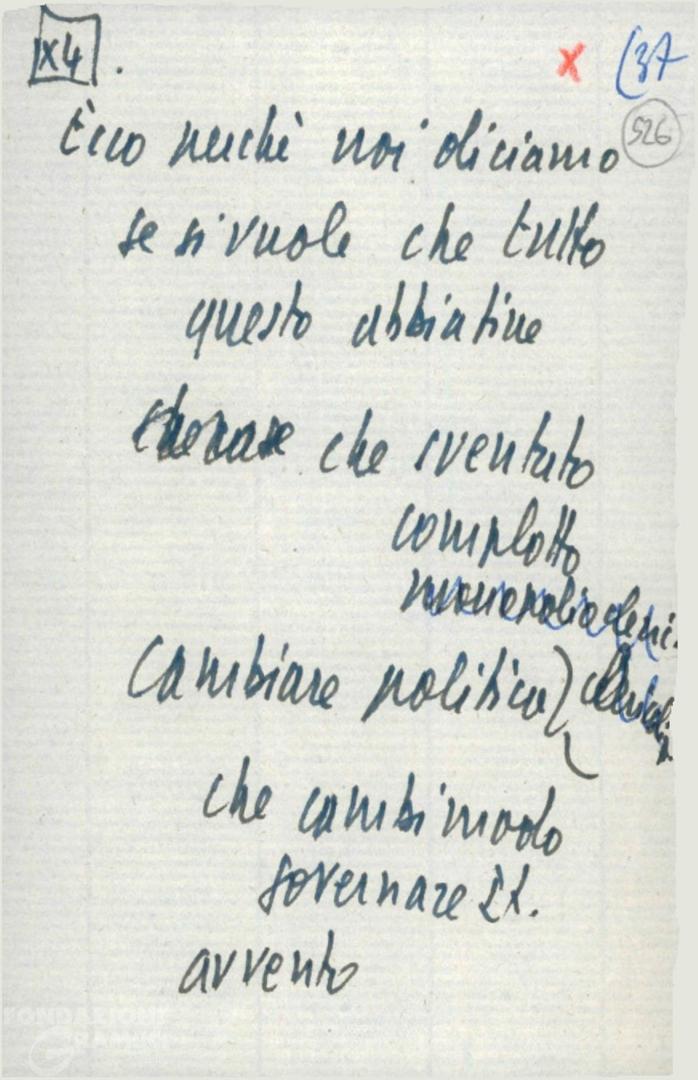 X4.
X (37
526
Ècco perchè noi diciamo
se si vuole che tutto
questo abbia fine
che sventato
complotto
Cambiare politica)
che cambi modo
governare
avvento
FONDAZIONE
GRAMSCI